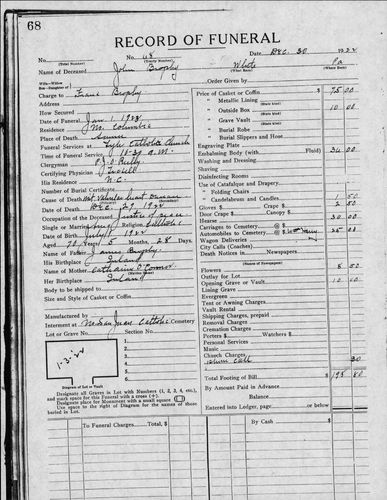 68
RECORD OF FUNERAL
No. 68 Date Dec. 30 1922
(Total Number) (Yearly Number)
Name of Deceased John Brophy White Pa
(What Race) (Where Born)
Charge to Frank Brophy
Address
How Secured
Date of Funeral Jan. 1
Residence No. Columbia
Place of Death Same
Funeral Services at Catholic Church
Time of Funeral Service 10-30 A.M.
Clergyman Reilly
Certifying Physician
His Residence N.C.
Number of Burial Certificate
Cause of Death Valvular Heart Disease
Date of Death Dec. 29 1922
Occupation of the Deceased Justice of Peace
Single or Married Religion Catholic
Date of Birth July
Aged 70 Years 5 Months 28 Days
Name of Father James Brophy
His Birthplace Ireland
Name of Mother Catharine O'Connor
Her Birthplace Ireland
Body to be shipped to
Size and Style of Casket or Coffin
Manufactured by
Interment at No San Juan Catholic Cemetery
Lot or Grave No. Section No.
1
2
3
4
5
1-3-22
Diagram of Lot or Vault
Designate all Graves in Lot with Numbers (1, 2, 3, 4, etc.), and mark space for this Funeral with a cross (+).
Designate place for Monument with a small square
Use space to right of diagram for the names of those buried in Lot.
Order Given by
Price of Casket or Coffin $ 75 00
" Metallic Lining
" Outside Box 10 00
" Grave Vault
" Burial Robe
" Burial Slippers and Hose
Engraving Plate
Embalming Body (with Fluid) 36 00
Washing and Dressing
Shaving
Disinfecting Rooms
Use of Catafalque and Drapery
" Folding Chairs
" Candelabrum and Candles 1 50
Gloves $ Crape $ 2 50
Door Crape Candopy $
Hearse 30 00
Carriages to Cemetery @ $
Automobiles to Cemetery @ $
Wagon Deliveries
City Calls (Coach)
Death Notices in Newspapers
(Names of Newspapers)
Flowers 5 50
Outlay for Lot
Opening Grave or Vault 10 00
Lining Grave
Evergreen
Tent or Awning Charges
Vault Rental
Shipping Charges, prepaid
Removal Charges
Cremation Charges
Porters $ Watchers $
Personal Services
Music
Church Charges
Phone Call 30
Total Footing of Bill $ 195 80
By Amount Paid in Advance
Balance
Entered into Ledger, page or below
TO FUNERAL CHARGES Total, $ BY CASH $